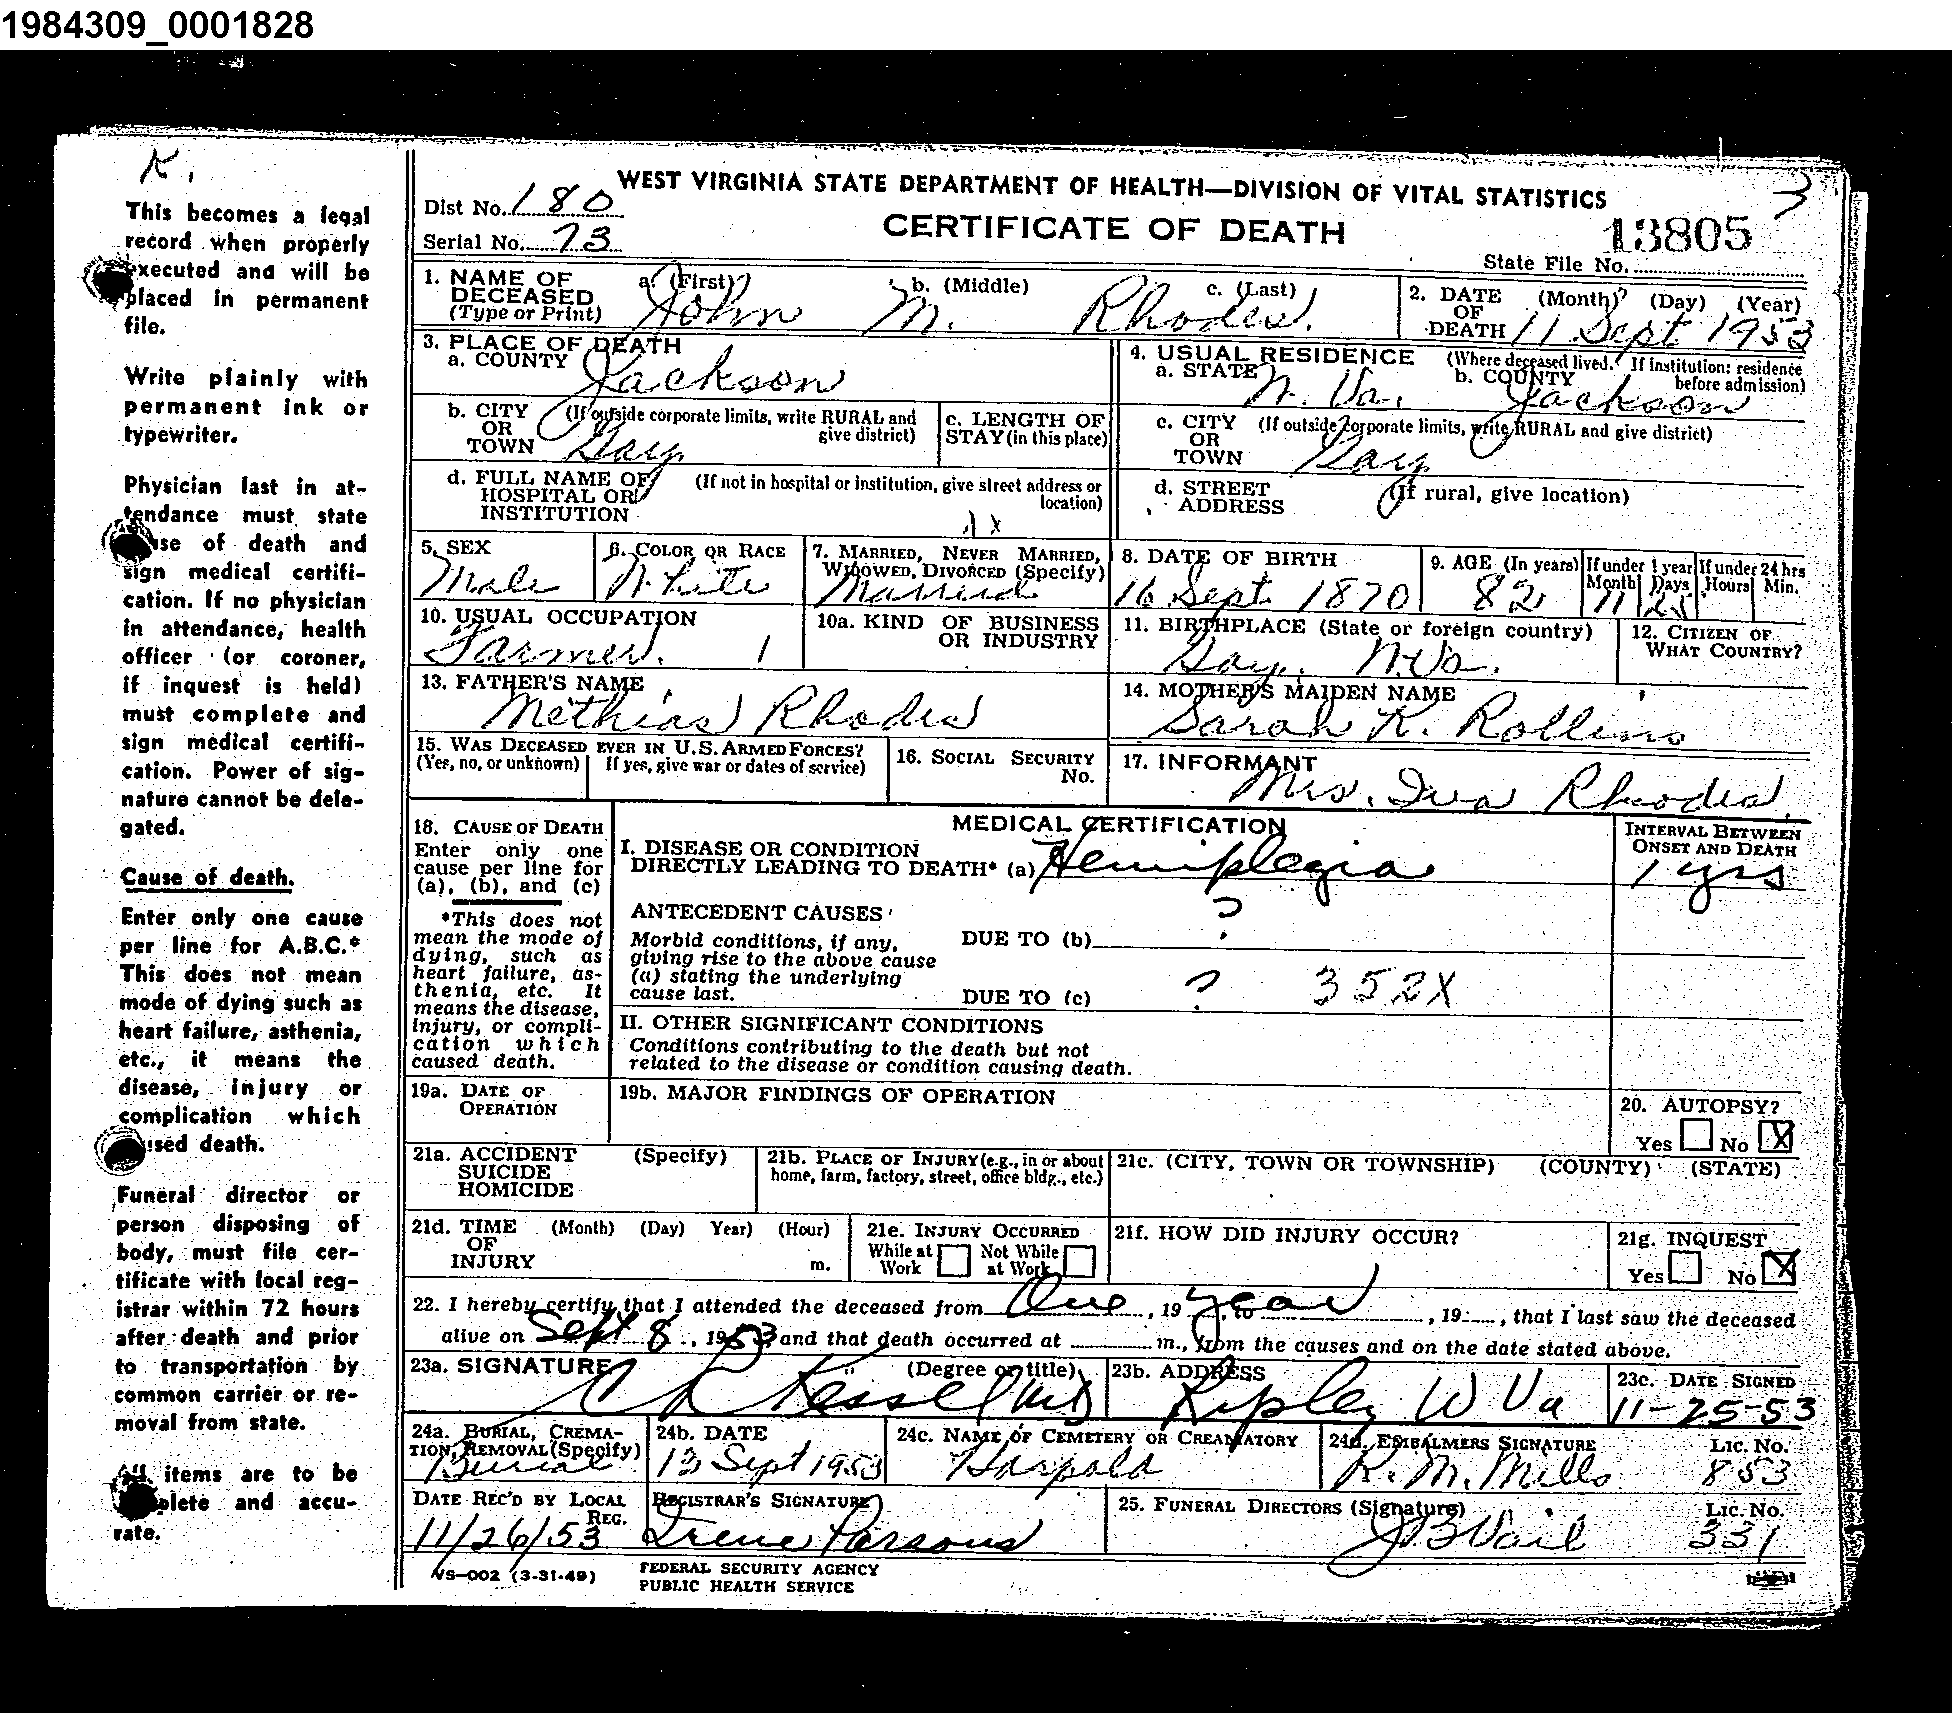 1984309_0001828
K.
This becomes a legal
record when properly
executed and will be
placed in permanent
file.
Write plainly with
permanent ink or
typewriter.
Physician last in at-
tendance must state
cause of death and
sign medical certifi-
cation. If no physician
in attendance, health
officer (or coroner,
if inquest is held)
must complete and
sign medical certifi-
cation. Power of sig-
nature cannot be dele-
gated.
Cause of death.
Enter only one cause
per line for A.B.C.*
This does not mean
mode of dying such as
heart failure, asthenia,
etc., it means the
disease, injury or
complication which
caused death.
Funeral director or
person disposing of
body, must file cer-
tificate with local reg-
istrar within 72 hours
after death and prior
to transportation by
common carrier or re-
moval from state.
All items are to be
complete and accu-
rate.
WEST VIRGINIA STATE DEPARTMENT OF HEALTH—DIVISION OF VITAL STATISTICS
3
Dist No. 180
Serial No. 73
CERTIFICATE OF DEATH
13805
State File No.
1. NAME OF DECEASED (Type or Print) a. (First) John b. (Middle) M. c. (Last) Rhodes.
2. DATE OF DEATH (Month) (Day) (Year) 11 Sept 1953
3. PLACE OF DEATH
a. COUNTY Jackson
4. USUAL RESIDENCE (Where deceased lived. If institution: residence before admission)
a. STATE W. Va. b. COUNTY Jackson
b. CITY OR TOWN (If outside corporate limits, write RURAL and give district) Gay
c. LENGTH OF STAY (in this place)
c. CITY OR TOWN (If outside corporate limits, write RURAL and give district) Gay
d. FULL NAME OF HOSPITAL OR INSTITUTION (If not in hospital or institution, give street address or location)
d. STREET ADDRESS (If rural, give location)
5. SEX Male
6. COLOR OR RACE White
7. MARRIED, NEVER MARRIED, WIDOWED, DIVORCED (Specify) Married
8. DATE OF BIRTH 16 Sept. 1870
9. AGE (In years) 82 If under 1 year Month 11 Days 25 If under 24 hrs Hours Min.
10. USUAL OCCUPATION Farmer. 1
10a. KIND OF BUSINESS OR INDUSTRY
11. BIRTHPLACE (State or foreign country) Gay, W.Va.
12. CITIZEN OF WHAT COUNTRY?
13. FATHER'S NAME Methias Rhodes
14. MOTHER'S MAIDEN NAME Sarah K. Rollins
15. WAS DECEASED EVER IN U.S. ARMED FORCES? (Yes, no, or unknown) If yes, give war or dates of service)
16. SOCIAL SECURITY No.
17. INFORMANT Mrs. Iva Rhodes
18. CAUSE OF DEATH
Enter only one
cause per line for
(a), (b), and (c)
*This does not
mean the mode of
dying, such as
heart failure, as-
thenia, etc. It
means the disease,
injury, or compli-
cation which
caused death.
MEDICAL CERTIFICATION
INTERVAL BETWEEN ONSET AND DEATH
I. DISEASE OR CONDITION
DIRECTLY LEADING TO DEATH* (a) Hemiplegia 1 yrs
ANTECEDENT CAUSES
Morbid conditions, if any,
giving rise to the above cause
(a) stating the underlying
cause last.
DUE TO (b) ?
DUE TO (c) ? 352X
II. OTHER SIGNIFICANT CONDITIONS
Conditions contributing to the death but not
related to the disease or condition causing death.
19a. DATE OF OPERATION
19b. MAJOR FINDINGS OF OPERATION
20. AUTOPSY?
Yes No X
21a. ACCIDENT SUICIDE HOMICIDE (Specify)
21b. PLACE OF INJURY (e.g., in or about home, farm, factory, street, office bldg., etc.)
21c. (CITY, TOWN OR TOWNSHIP) (COUNTY) (STATE)
21d. TIME OF INJURY (Month) (Day) Year) (Hour) m.
21e. INJURY OCCURRED While at Work Not While at Work
21f. HOW DID INJURY OCCUR?
21g. INQUEST
Yes No X
22. I hereby certify that I attended the deceased from One, 19 year, to, 19, that I last saw the deceased
alive on Sept 8, 1953 and that death occurred at m., from the causes and on the date stated above.
23a. SIGNATURE (Degree or title) Kessel MD
23b. ADDRESS Ripley W Va
23c. DATE SIGNED 11-25-53
24a. BURIAL, CREMATION, REMOVAL (Specify) Burial
24b. DATE 13 Sept 1953
24c. NAME OF CEMETERY OR CREAMATORY Harpold
24d. EMBALMERS SIGNATURE R. M. Mills LIC. NO. 853
DATE REC'D BY LOCAL REG. 11/26/53
REGISTRAR'S SIGNATURE Irene Parsons
25. FUNERAL DIRECTORS (Signature) J B Vail LIC. NO. 331
VS-002 (3-31-49)
FEDERAL SECURITY AGENCY
PUBLIC HEALTH SERVICE